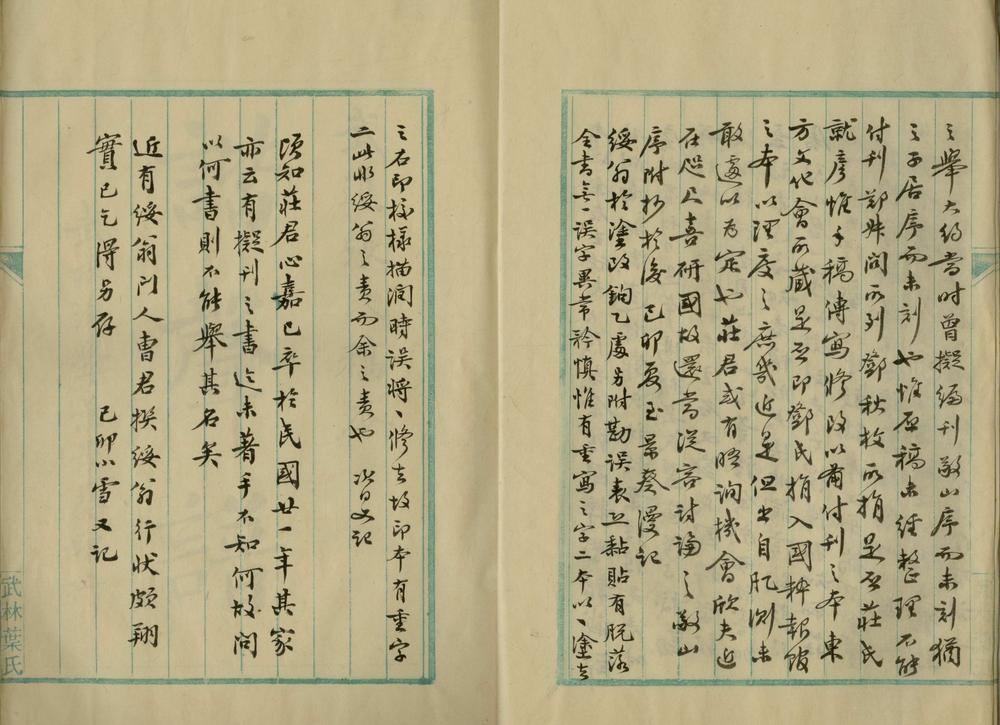 之舉大約當時曾擬編刊敬山序而未刻猶
之子居序而未刻也惟原稿未經整理不能
付刊鄭叔問所列鄧秋枚所指是否莊氏
就彥惟手稿傳寫修改以備付刊之本東
方文化會所藏是否即鄧氏捐入國粹報館
之本以理度之庶幾近是但出自肊測未
敢遽以為定也莊君或有晤詢機會欣夫近
在咫尺喜研國故還當從容討論之敬山
序附抄於後己卯夏至景葵漫記
綏翁於塗改鉤乙處另附勘誤表並黏貼有脫落
全書無一誤字異常矜慎惟有重寫之字二本以、塗去
之右印樣描潤時誤將、修去故印本有重字
二此非綏翁之責而余之責也 次日又記
頃知莊君心嘉已卒於民國廿一年其家
亦云有擬刊之書迄未著手不知何故問
以何書則不能舉其名矣
近有綏翁門人曹君撰綏翁行狀頗翔
實已乞得另存 己卯小雪又記
武林葉氏